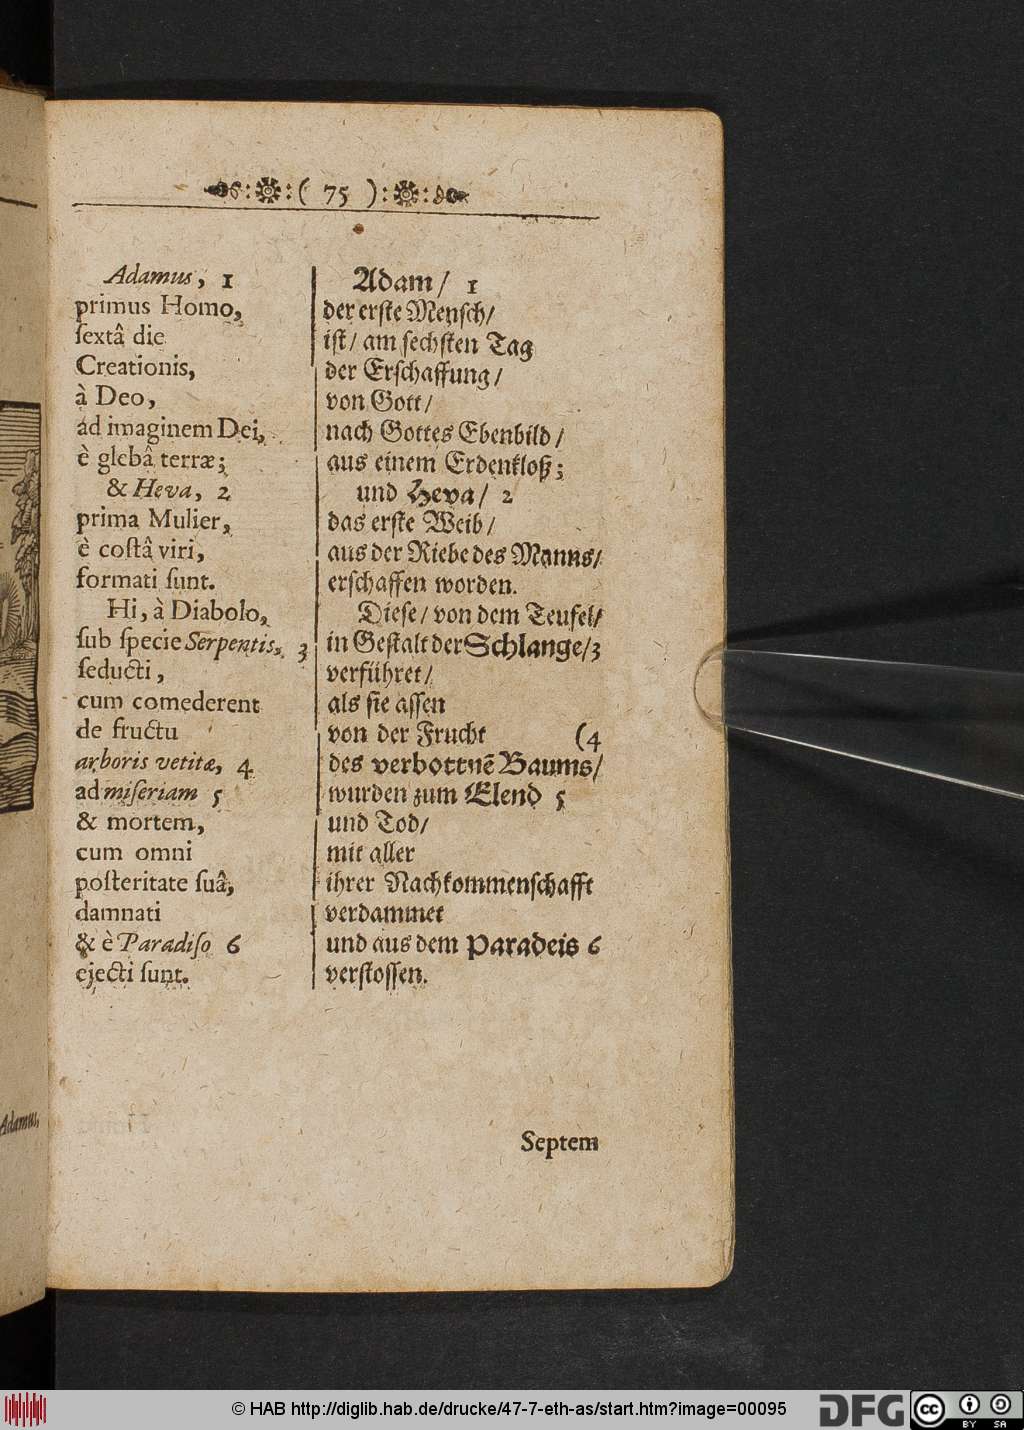 ( 75 )
Adamus, 1
primus Homo,
ſextâ die
Creationis,
à Deo,
ad imaginem Dei,
è glebâ terræ;
& Heva, 2
prima Mulier,
è coſtâ viri,
formati ſunt.
Hi, à Diabolo,
ſub ſpecie Serpentis, 3
ſeducti,
cum comederent
de fructu
arboris vetitæ, 4
ad miſeriam 5
& mortem,
cum omni
poſteritate ſuâ,
damnati
& è Paradiſo 6
ejecti ſunt.
Adam/ 1
der erſte Menſch/
iſt/ am ſechſten Tag
der Erſchaffung/
von Gott/
nach Gottes Ebenbild/
aus einem Erdenkloß;
und Heva/ 2
das erſte Weib/
aus der Riebe des Manns/
erſchaffen worden.
Dieſe/ von dem Teufel/
in Geſtalt der Schlange/3
verführet/
als ſie aſſen
von der Frucht (4
des verbottnẽ Baums/
wurden zum Elend 5
und Tod/
mit aller
ihrer Nachkommenſchafft
verdammet
und aus dem Paradeis 6
verſtoſſen.
Septem
Adamus,
© HAB http://diglib.hab.de/drucke/47-7-eth-as/start.htm?image=00095
DFG
cc
BY SA